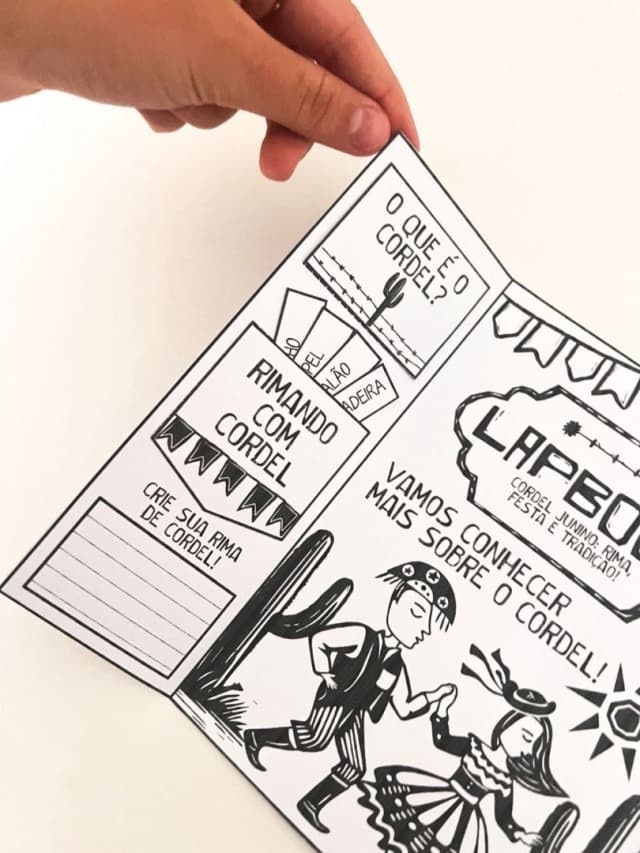 O QUE É O
CORDEL?
RIMANDO
COM
CORDEL
CRIE SUA RIMA
DE CORDEL!
CORDEL JUNINO: RIMA,
FESTA E TRADIÇÃO!
VAMOS CONHECER
MAIS SOBRE O CORDEL!